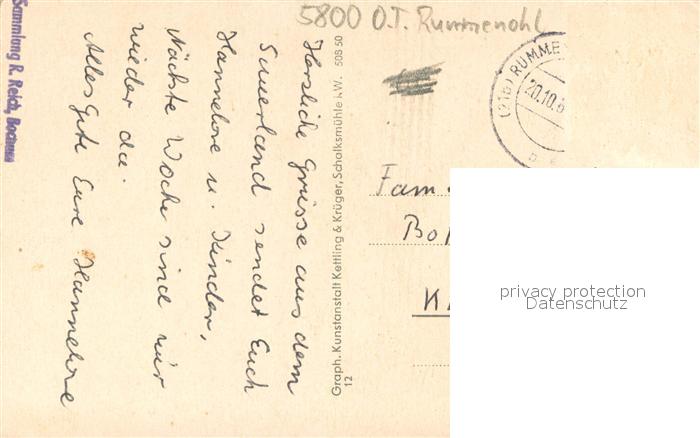 5800 O.T. Rummenohl
Sammlung R. Reich, Bochum
Herzliche Grüsse aus dem
Sauerland sendet Euch
Hannelore u. Kinder,
Nächste Woche sind wir
wieder da.
Alles Gute Eure Hannelore
Graph. Kunstanstalt Kettling & Krüger, Schalksmühle i.W. 50B 50
12
(21b) RUMME
20.10.
Fam.
privacy protection
Datenschutz